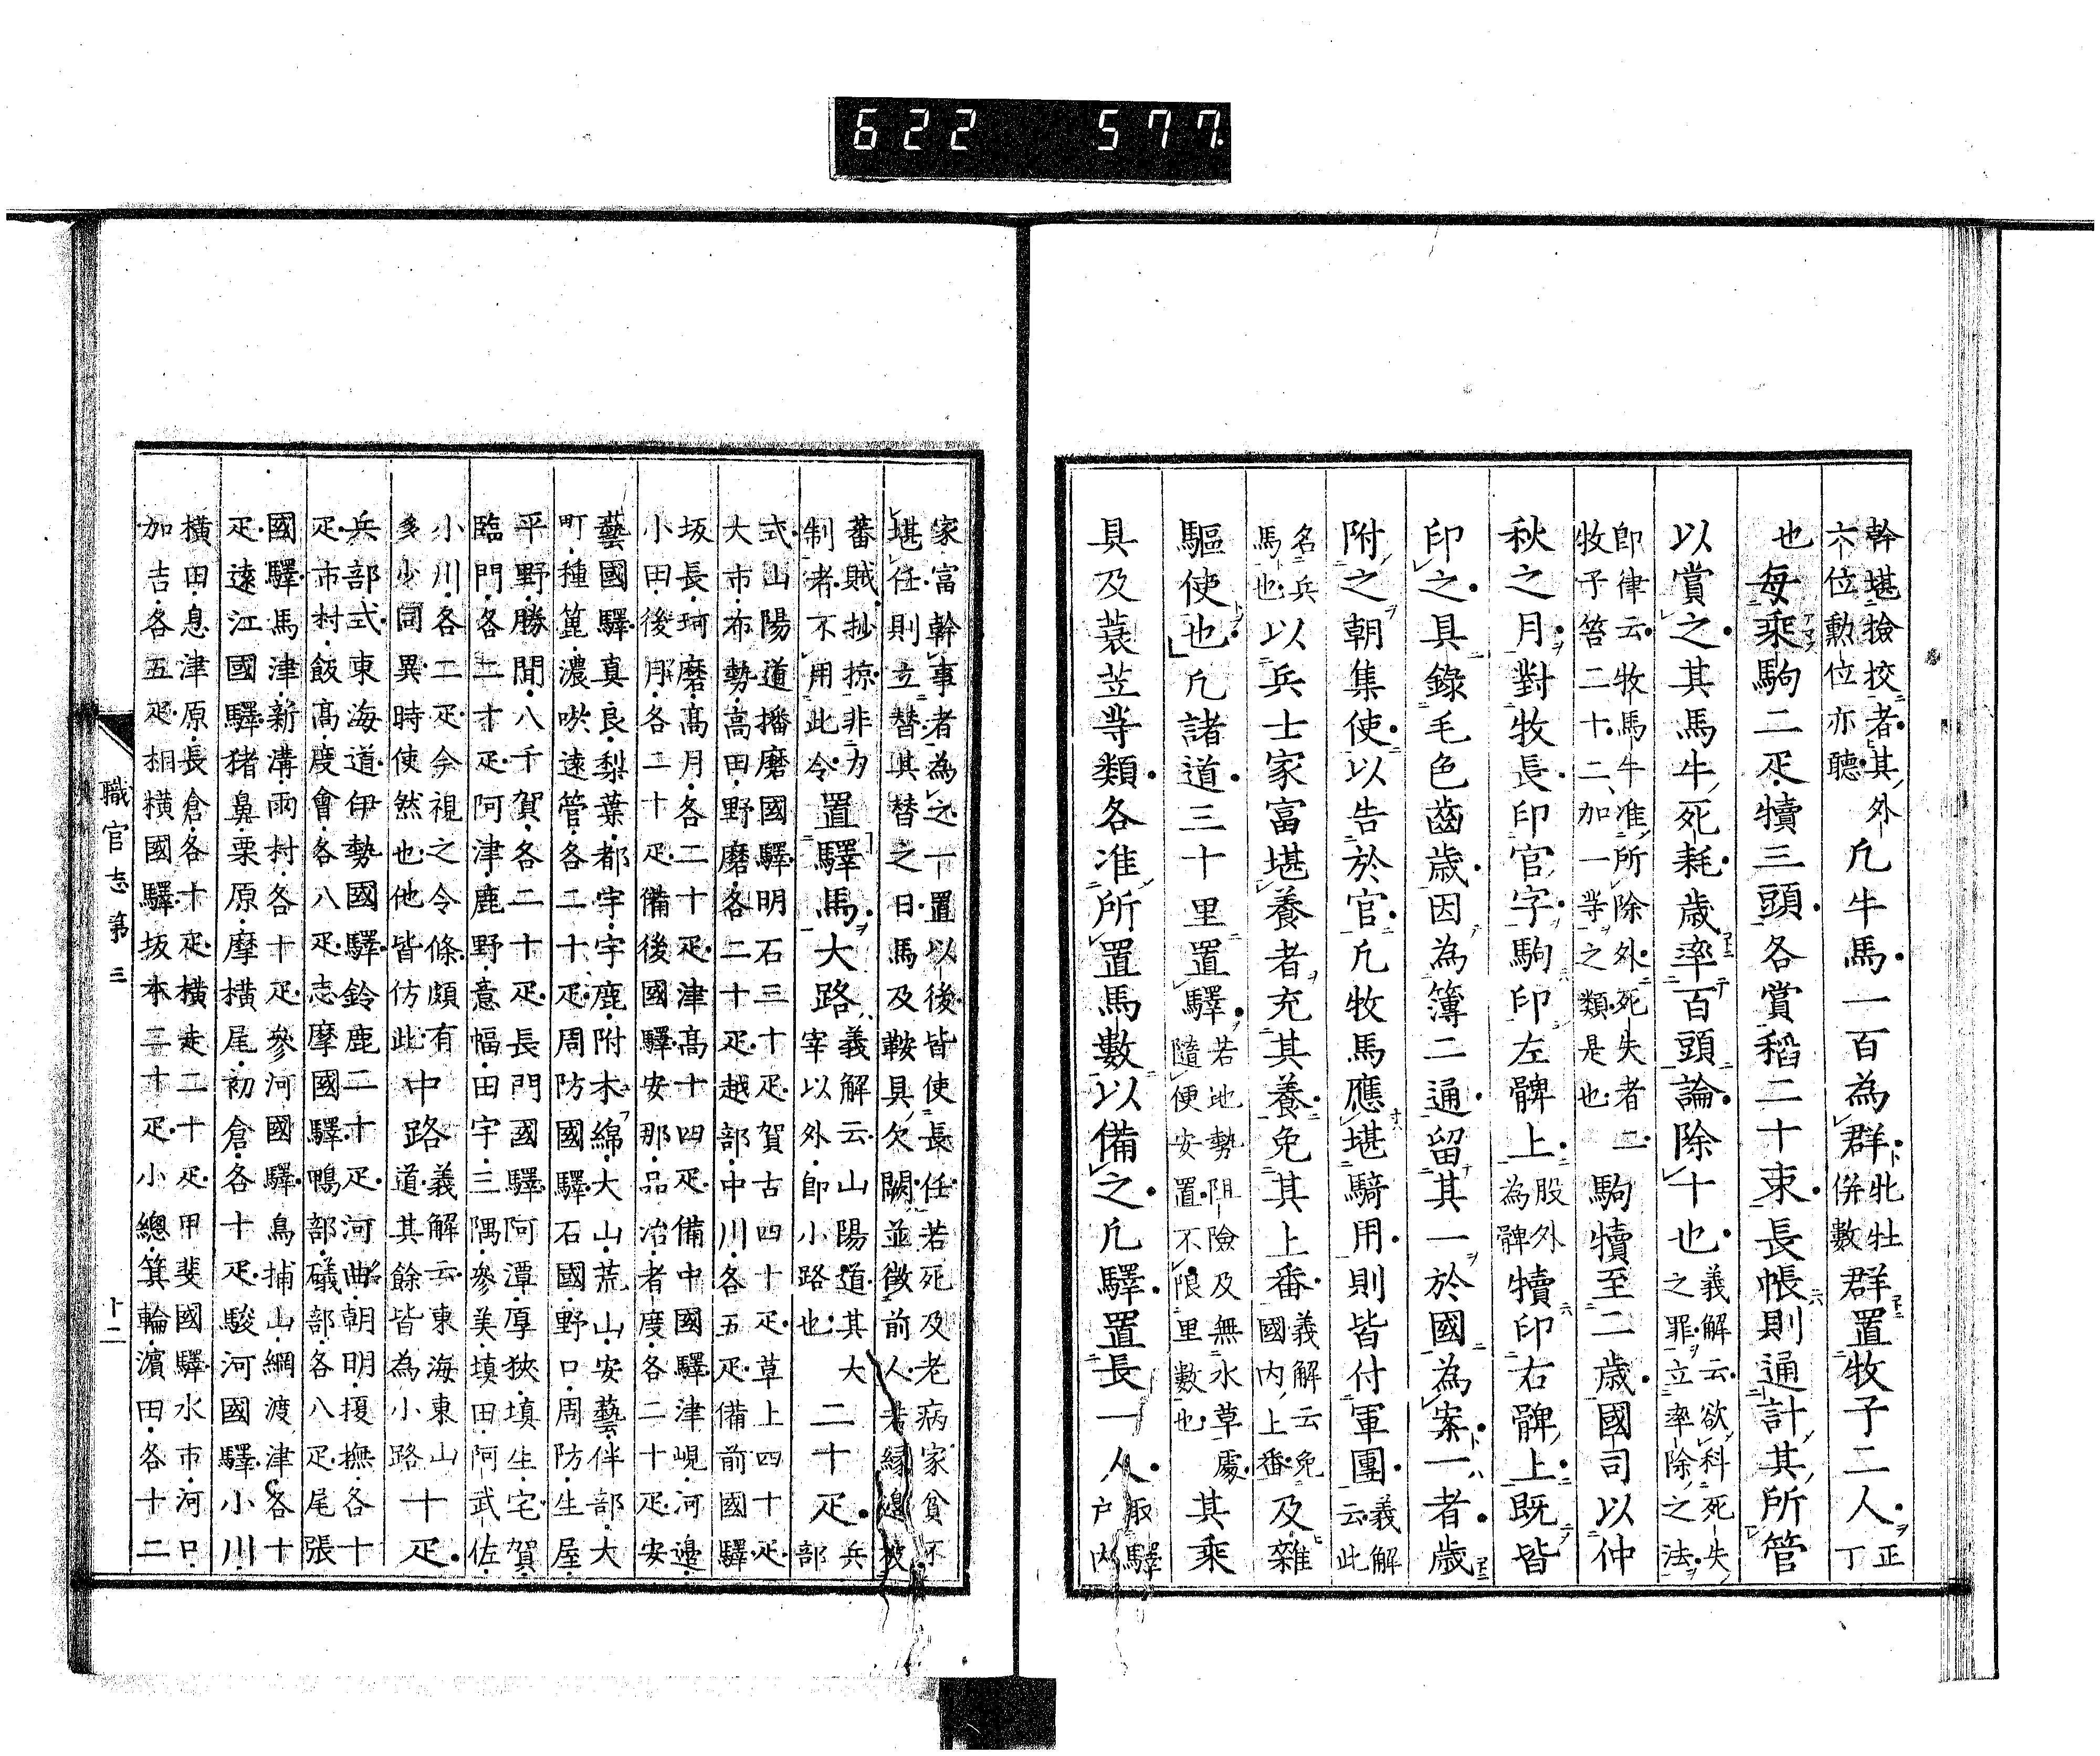 幹堪撿挍者其外
六位勲位亦聽
凡牛馬一百為群
牝牡
併數
群置牧子二人
正
丁
也每乘駒二疋犢三頭各賞稻二十束長帳則通計其所管
以賞之其馬牛死耗歳率百頭論除十也
義解云欲科死失
之罪立率除之法
即律云牧馬牛准所除外死失者二
牧子笞二十二加一等之類是也
駒犢至二歳國司以仲
秋之月對牧長印官字駒印左髀上
股外
為髀
犢印右髀上既皆
印之具錄毛色齒歳因為簿二通留其一於國為案一者歳
附之朝集使以告於官凡牧馬應堪騎用則皆付軍團
義解
云此
名兵
馬也
以兵士家富堪養者充其養免其上番
義解云免
國内上番
及雜
驅使也凡諸道三十里置驛
若地勢阻險及無水草處
隨便安置不限里數也
其乘
具及蓑笠等類各准所置馬數以備之凡驛置長一人
取驛
户内
家富幹事者為之一置以後皆使長任若死及老病家貧不
堪任則立替其替之日馬及鞍具欠闕並徴前人若縁邊被
蕃賊抄掠非力
制者不用此令
置驛馬大路
義解云山陽道其大
宰以外即小路也
二十疋
兵
部
式山陽道播磨國驛明石三十疋賀古四十疋草上四十疋
大市布勢高田野磨各二十疋越部中川各五疋備前國驛
坂長珂磨高月各二十疋津高十四疋備中國驛津峴河邊
小田後月各二十疋備後國驛安那品治者度各二十疋安
藝國驛真良梨葉都宇鹿附木綿大山荒山安藝伴部大
町種箆濃唹遠管各二十疋周防國驛石國野口周防生屋
平野勝間八千賀各二十疋長門國驛阿潭厚狹填生宅賀
臨門各二十疋阿津鹿野意幅田宇三隅參美填田阿武佐
小川各二疋今視之令條頗有
多少同異時使然也他皆仿此
中路
義解云東海東山
道其餘皆為小路
十疋
兵部式東海道伊勢國驛鈴鹿二十疋河曲朝明榎撫各十
疋市村飯高度會各八疋志摩國驛鴨部礒部各八疋尾張
國驛馬津新溝兩村各十疋參河國驛鳥捕山綱渡津各十
疋遠江國驛猪鼻栗原摩橫尾初倉各十疋駿河國驛小川
橫田息津原長倉各十疋橫走二十疋甲斐國驛水市河口
加吉各五疋相橫國驛坂本二十疋小總箕輪濱田各十二
職官志第三
十二
622 577